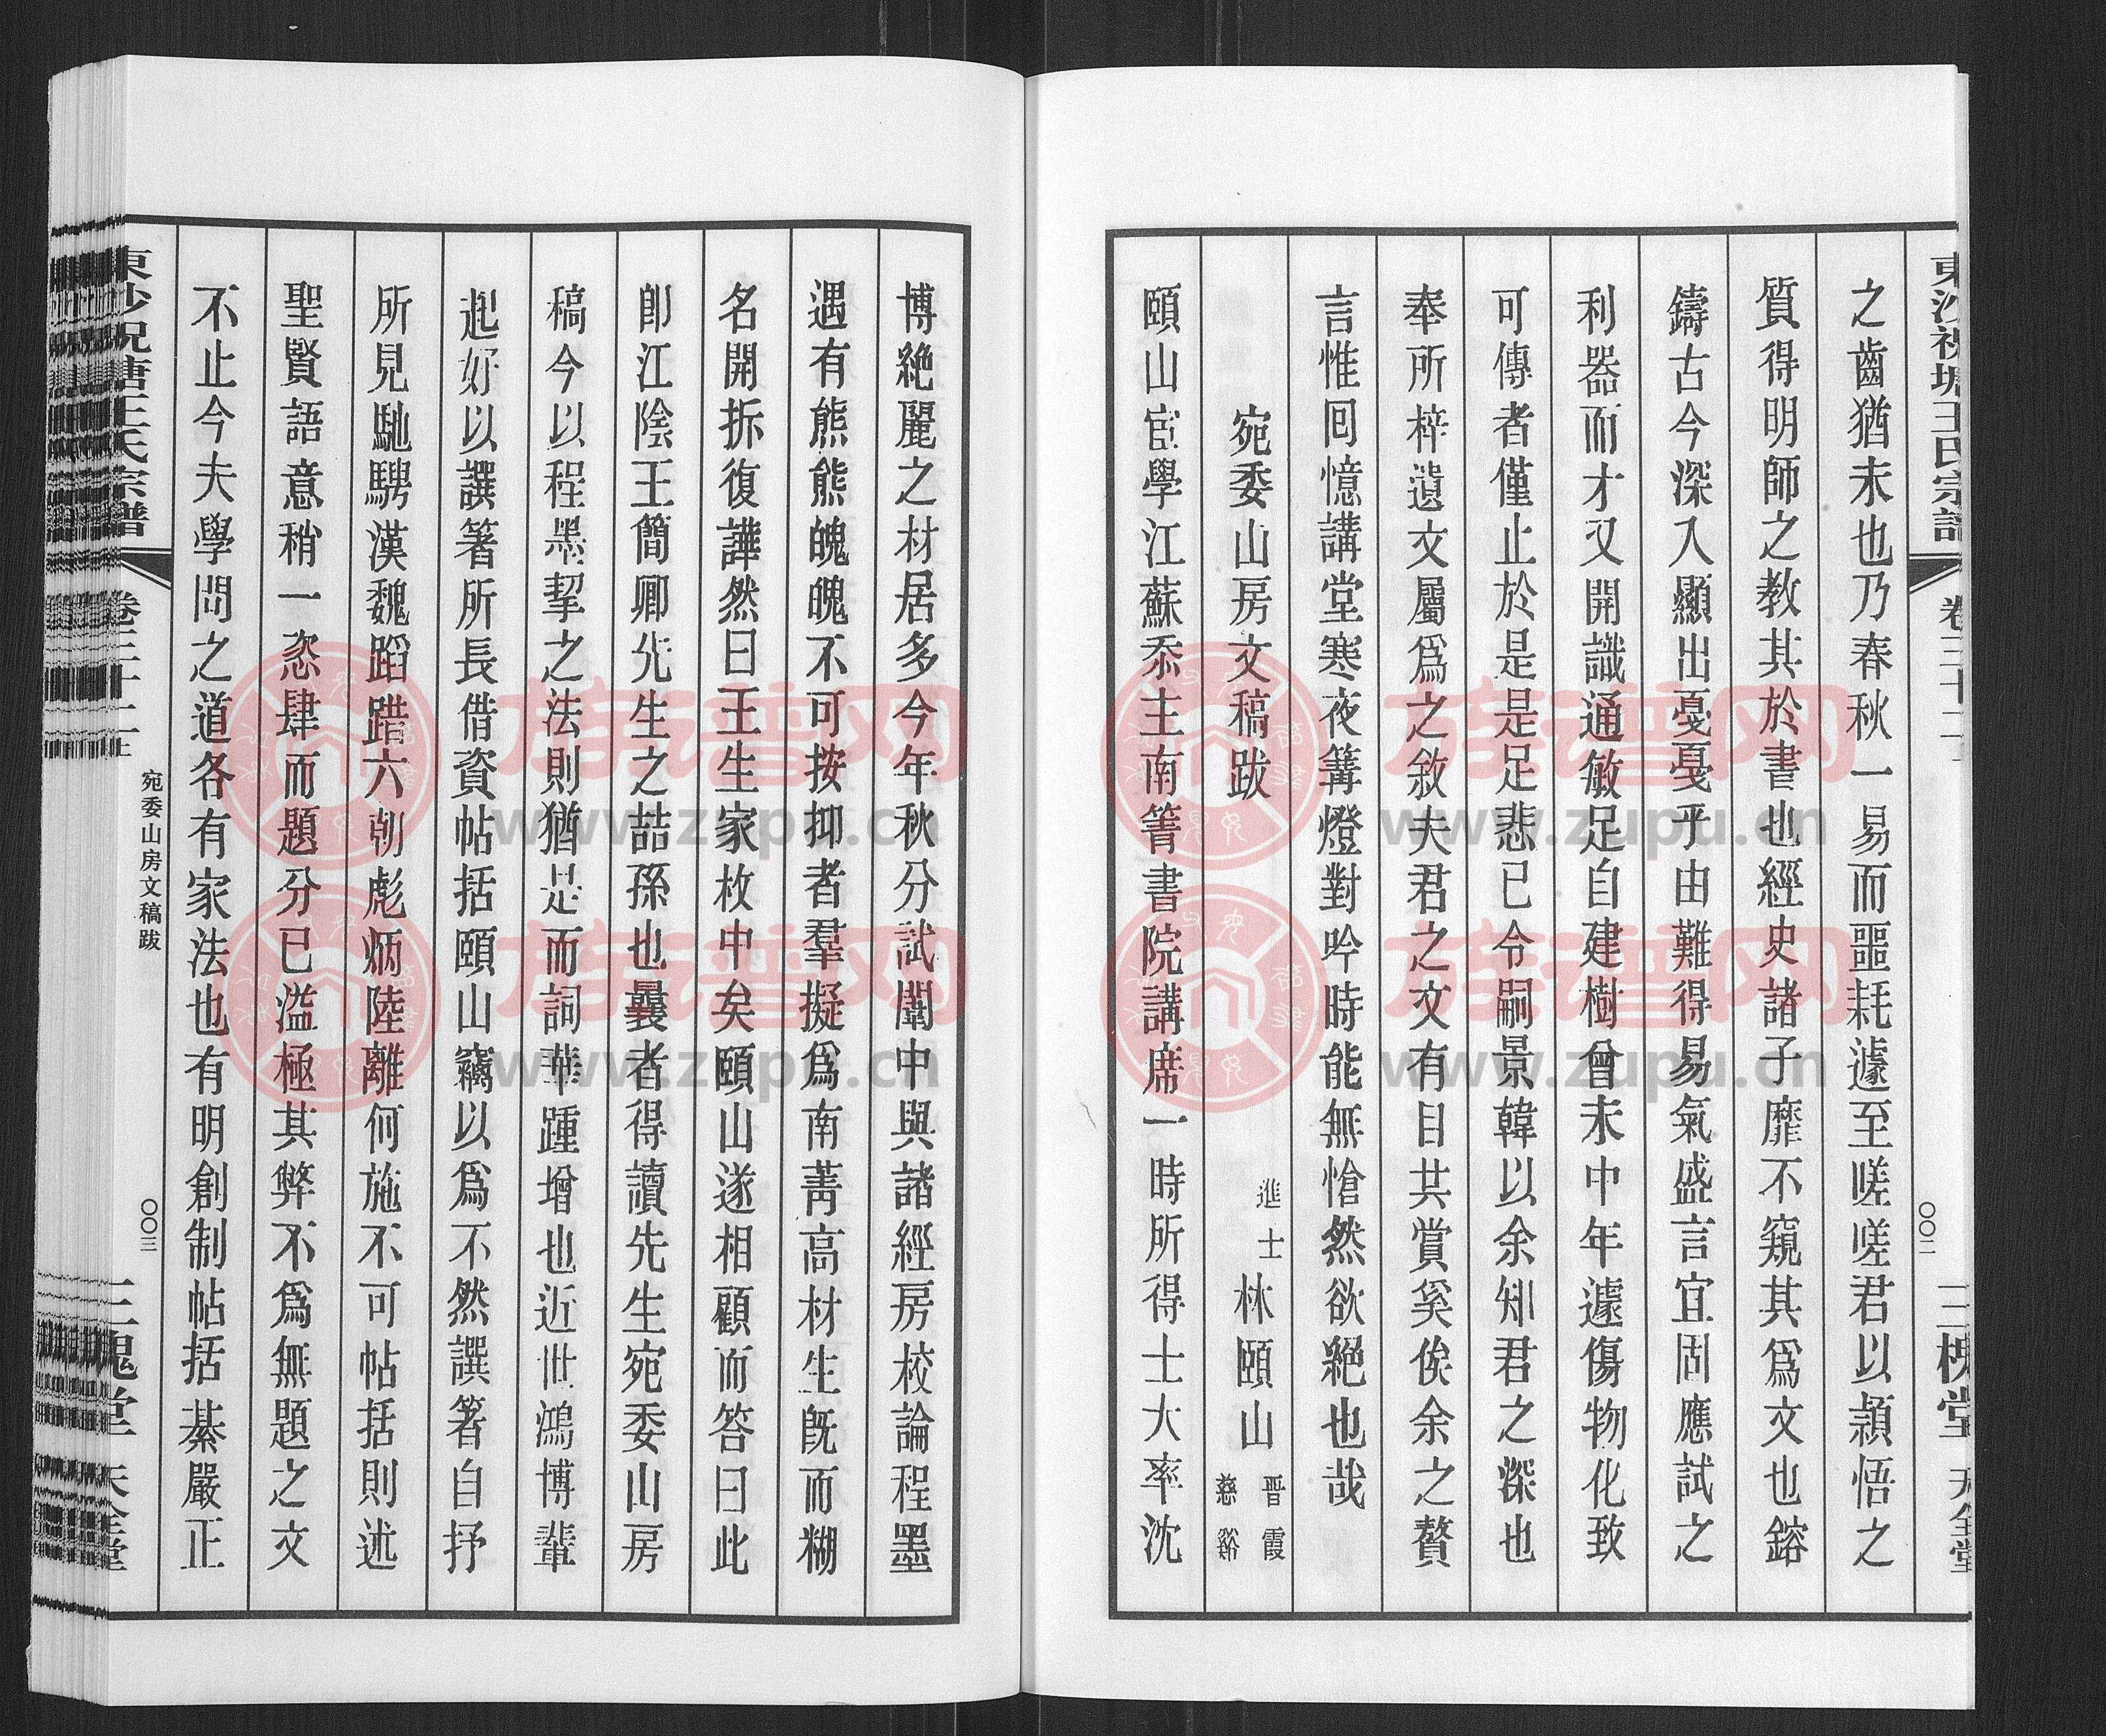 東沙祝塘王氏宗譜 卷三十二 〇〇二 三槐堂 天全堂
之齒猶未也乃春秋一易而噩耗遽至嗟嗟君以頴悟之
質得明師之教其於書也經史諸子靡不窺其爲文也鎔
鑄古今深入顯出戞戞乎由難得易氣盛言宜固應試之
利器而才又開識通敏足自建樹曾未中年遽傷物化致
可傳者僅止於是是足悲已令嗣景韓以余知君之深也
奉所梓遺文屬爲之敘夫君之文有目共賞奚俟余之贅
言惟囘憶講堂寒夜篝燈對吟時能無愴然欲絕也哉
宛委山房文稿跋 進士林頤山 晋霞 慈谿
頤山宦學江蘇忝主南箐書院講席一時所得士大率沈
博絶麗之材居多今年秋分試闈中與諸經房校論程墨
遇有熊熊魄魄不可按抑者羣擬爲南菁高材生旣而糊
名開拆復譁然曰王生家枚中矣頤山遂相顧而答曰此
卽江陰王簡卿先生之喆孫也曩者得讀先生宛委山房
稿今以程墨挈之法則猶是而詞華踵增也近世鴻博輩
起好以譔箸所長借資帖括頤山竊以爲不然譔箸自抒
所見馳騁漢魏蹈踖六朝彪炳陸離何施不可帖括則述
聖賢語意稍一恣肆而題分已溢極其弊不爲無題之文
不止今夫學問之道各有家法也有明創制帖括綦嚴正
東沙祝塘王氏宗譜 卷三十二 宛委山房文稿跋 〇〇三 三槐堂 天全堂
族谱网
www.zupu.cn
族谱网
www.zupu.cn
族谱网
www.zupu.cn
族谱网
www.zupu.cn